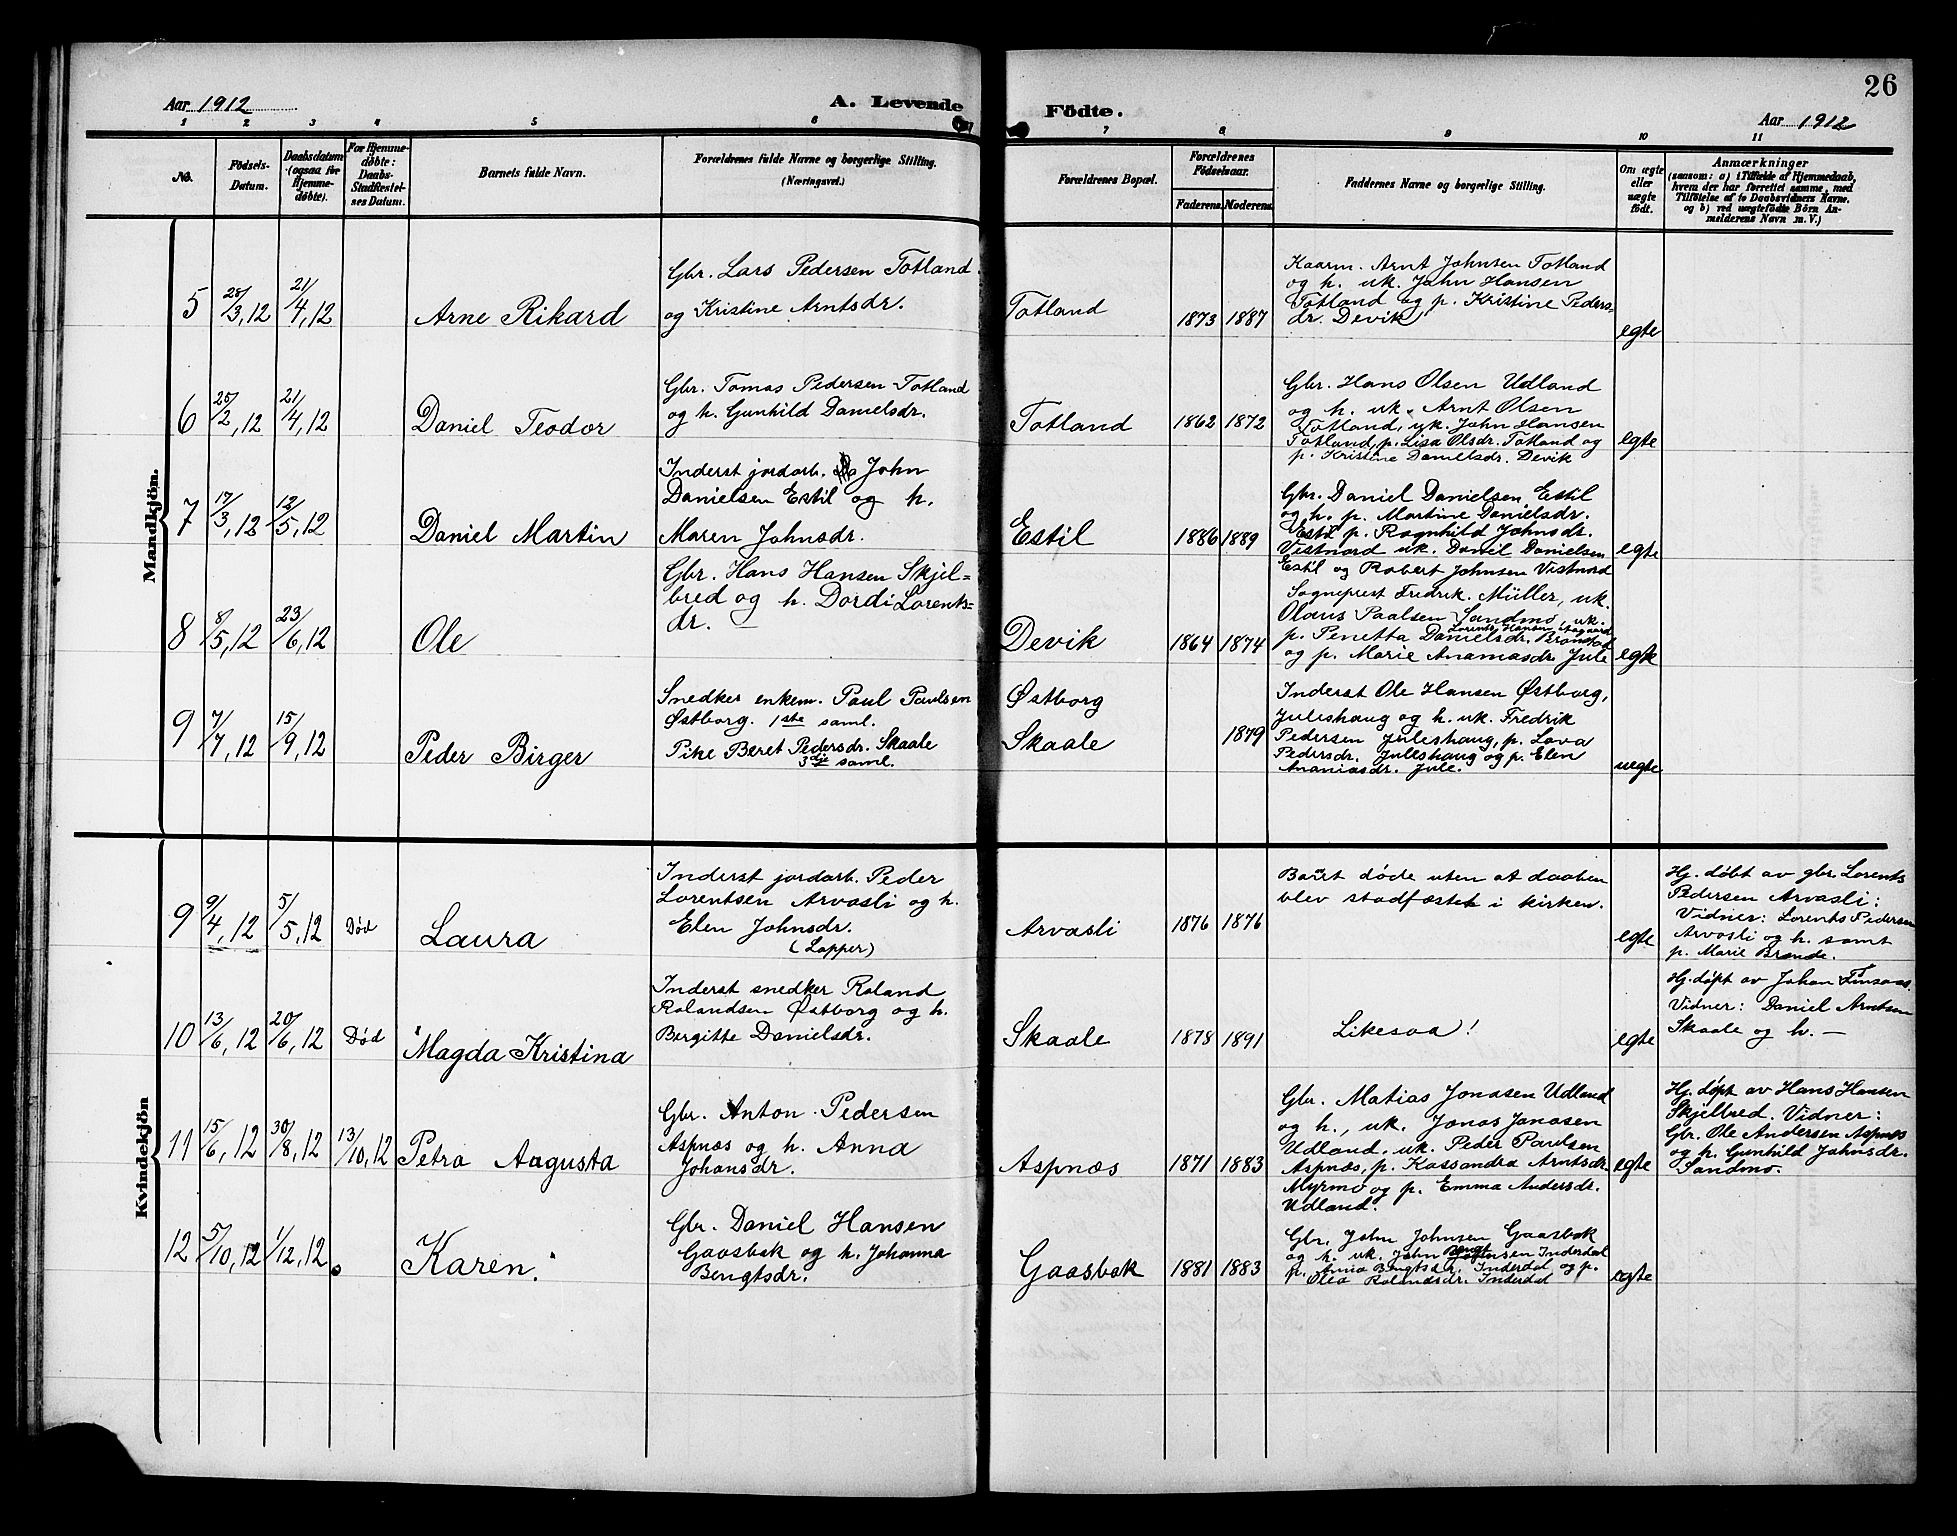 26
Aar 1912
A. Levende
Födte.
Aar 1912
1 2 3 4 5 6 7 8 9 10 11
No.
Födsels-
Datum.
Daabsdatum
(ogsaa for
Hjemme-
døbte).
For Hjemme-
døbte:
Daabs-
Stadfæstel-
ses Datum.
Barnets fulde Navn.
Forældrenes fulde Navne og borgerlige Stilling.
(Næringsvei.)
Forældrenes Bopæl.
Forældrenes
Födselsaar.
Faderens.
Moderens.
Faddernes Navne og borgerlige Stilling.
Om ægte
eller
uægte
født.
Anmærkninger
(saasom: a) i Tilfælde af Hjemmedaab,
hvem der har forrettet samme, med
Tilföielse af to Daabsvidners Navne.
og b) ved uægtefödte Börn An-
melderens Navn m. V.)
Mandkjön.
5
28/3, 12
21/4, 12
Arne Rikard
Gbr. Lars Pedersen Totland
og Kristine Arntsdr.
Totland
1873
1887
Kaarm. Arnt Johnsen Totland
og h. uk. John Hansen
Totland og p. Kristine Peders-
dr. Devik
egte
6
25/2, 12
21/4, 12
Daniel Teodor
Gbr. Tomas Pedersen Totland
og h. Gunhild Danielsdr.
Totland
1862
1872
Gbr. Hans Olsen Udland
og h. uk. Arnt Olsen
Totland, uk. John Hansen
Totland, p. Lisa Olsdr. Totland og
p. Kristine Danielsdr. Devik
egte
7
17/3, 12
12/5, 12
Daniel Martin
Inderst jordarb. John
Danielsen Estil og h.
Maren Johnsdr.
Estil
1886
1889
Gbr. Daniel Danielsen Estil
og h. p. Martine Danielsdr.
Estil p. Ragnhild Johnsdr.
Vistnord uk. Daniel Danielsen
Estil og Robert Johnsen Vistnord
egte
8
8/5, 12
23/6, 12
Ole
Gbr. Hans Hansen Skjel=
bred og h. Dordi Lorents=
dr.
Devik
1864
1874
Sogneprest Fredrik Müller, uk.
Olaus Paalsen Sandmo, uk.
Lorents Hansen
p. Penetta Danielsdr.
og p. Marie Ananiasdr. Jule
egte
9
7/7, 12
15/9, 12
Peder Birger
Snedker enkem. Paul Paulsen
Østborg. 1ste saml.
Pike Beret Pedersdr. Skaale
3die saml.
Østborg
Skaale
1879
Inderst Ole Hansen Østborg,
Juleshaug og h. uk. Fredrik
Pedersen Juleshaug, p. Lova
Pedersdr. Juleshaug og p. Elen
Ananiasdr. Jule.
uegte
Kvindekjön
9
9/4, 12
5/5, 12
Død
Laura
Inderst jordarb. Peder
Lorentsen Arvasli og h.
Elen Johnsdr.
(Lapper)
Arvasli
1876
1876
Barnet døde uten at daaben
blev stadfæstet i kirken.
egte
Hj. døbt av gbr Lorents
Pedersen Arvasli:
Vidner: Lorents Pedersen
Arvasli og h. samt
p. Marie Brende.
10
13/6, 12
20/6, 12
Død
Magda Kristina
Inderst snedker Roland
Rolandsen Østborg og h.
Bergitte Danielsdr.
Skaale
1878
1891
Likesaa!
egte
Hj. døpt av Johan
Vidner: Daniel Arntsen
Skaale og h. —
11
15/6, 12
30/8, 12
13/10, 12
Petra Augusta
Gbr. Anton Pedersen
Aspnæs og h. Anna
Johansdr.
Aspnæs
1871
1883
Gbr. Matias Jonasen Udland
og h., uk. Jonas Jonasen
Udland, uk. Peder Paulsen
Aspnæs, p. Kassandra Arntsdr.
Myrmo og p. Emma Andersdr.
Udland.
egte
Hj. døpt av Hans Hansen
Skjelbred. Vidner:
Gbr. Ole Andersen Aspnæs
og h. Gunhild Johnsdr.
Sandmo.
12
5/10, 12
1/12, 12
Karen.
Gbr. Daniel Hansen
Gaasbak og h. Johanna
Bengtsdr.
Gaasbak
1881
1883
Gbr. John Johnsen Gaasbak
og h. uk. John Bengtsen Inderdal
p. Anna Bengtsdr. Inderdal og p.
Olea Rolandsdr. Inderdal
egte